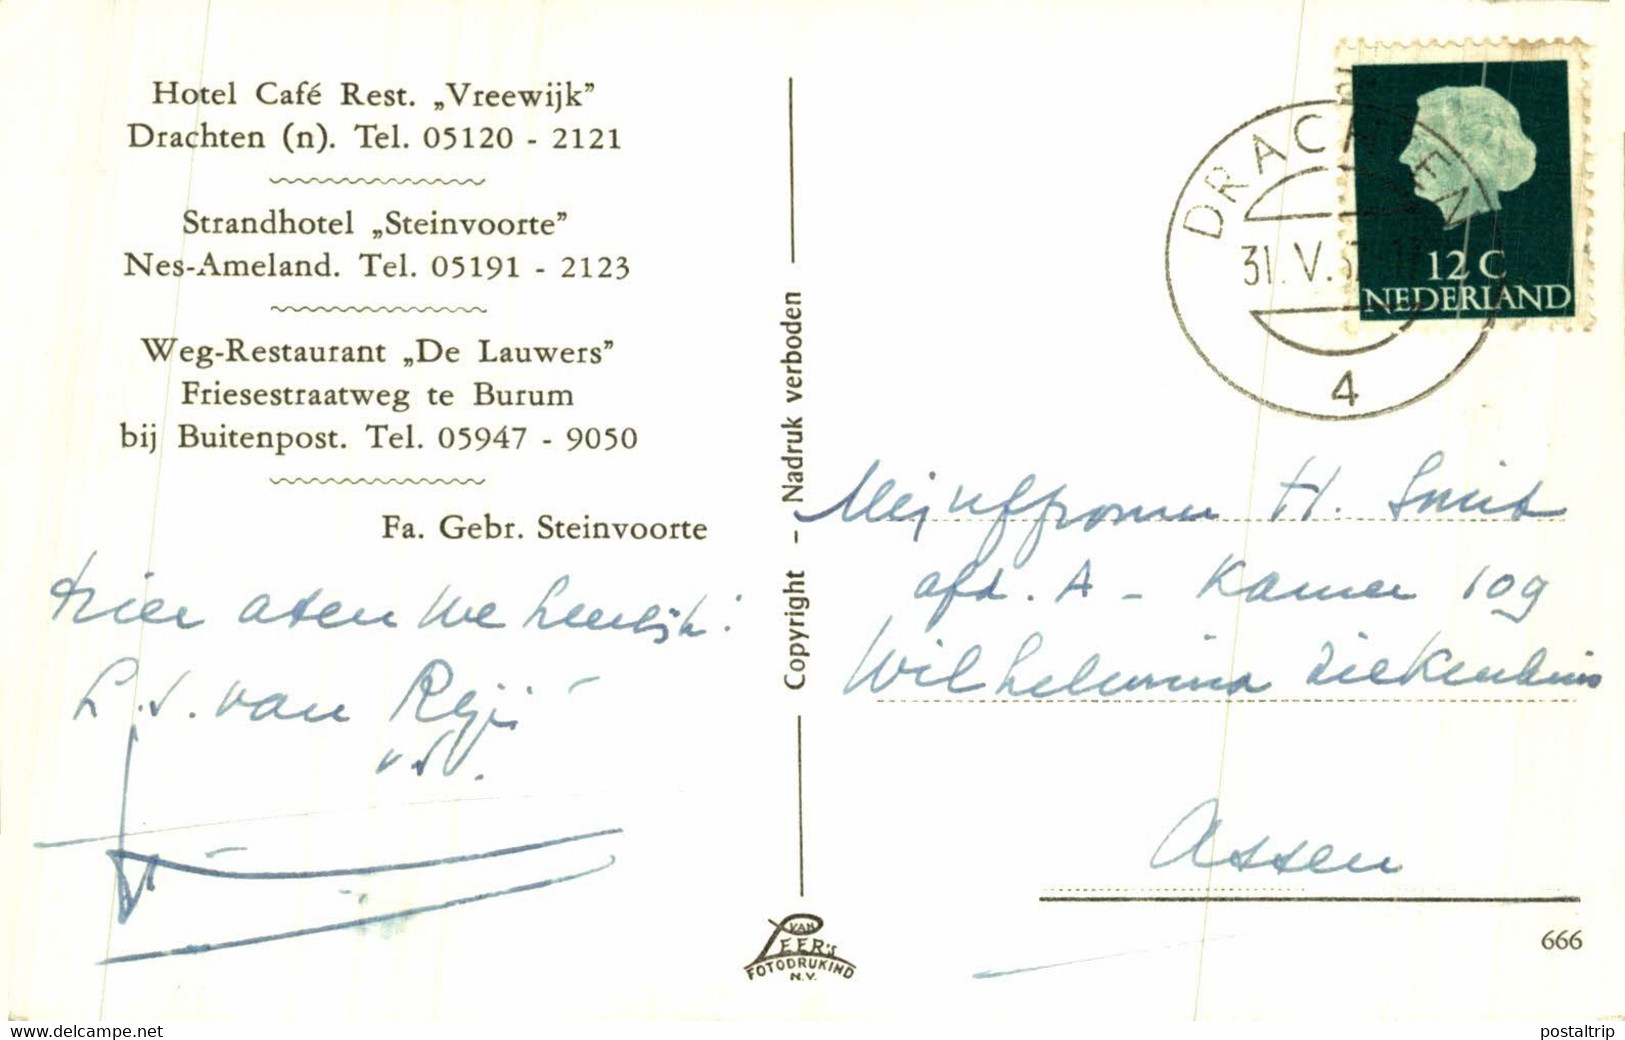 Hotel Café Rest. „Vreewijk”
Drachten (n). Tel. 05120 - 2121
Strandhotel „Steinvoorte”
Nes-Ameland. Tel. 05191 - 2123
Weg-Restaurant „De Lauwers”
Friesestraatweg te Burum
bij Buitenpost. Tel. 05947 - 9050
Fa. Gebr. Steinvoorte
Hier aten we heerlijk!
van
Copyright - Nadruk verboden
VAN
LEER's
FOTODRUKIND
N.V.
DRACHTEN
31.V.
4
12 C
NEDERLAND
Mejuffrouw H. Smit
afd. A - Kamer 109
Wilhelmina Ziekenhuis
Assen
666
www.delcampe.net
postaltrip